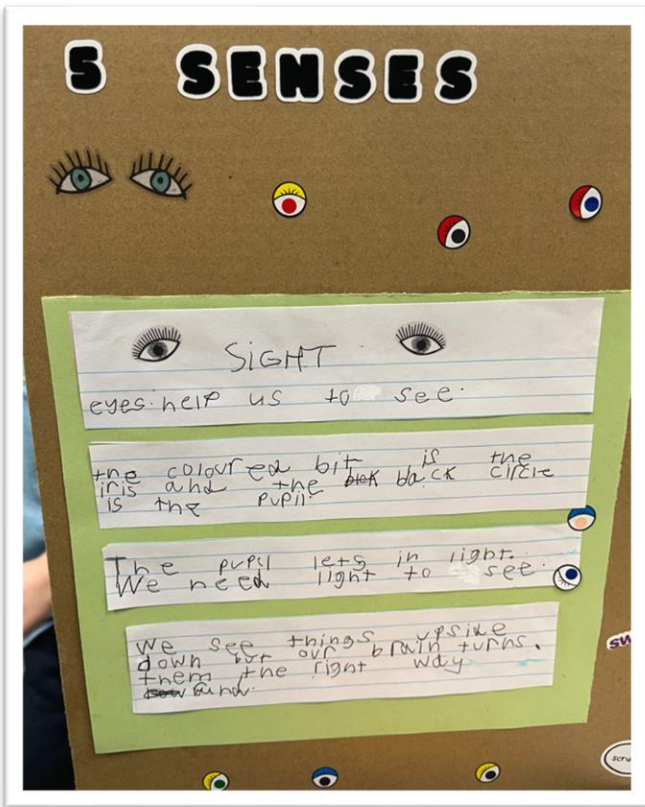 5 SENSES
SIGHT
eyes help us to see.
the coloured bit is the
iris and the back circle
is the pupil.
The pupil lets in light.
We need light to see.
We see things upside
down but our brain turns.
them the right way
aund.
sw
scru